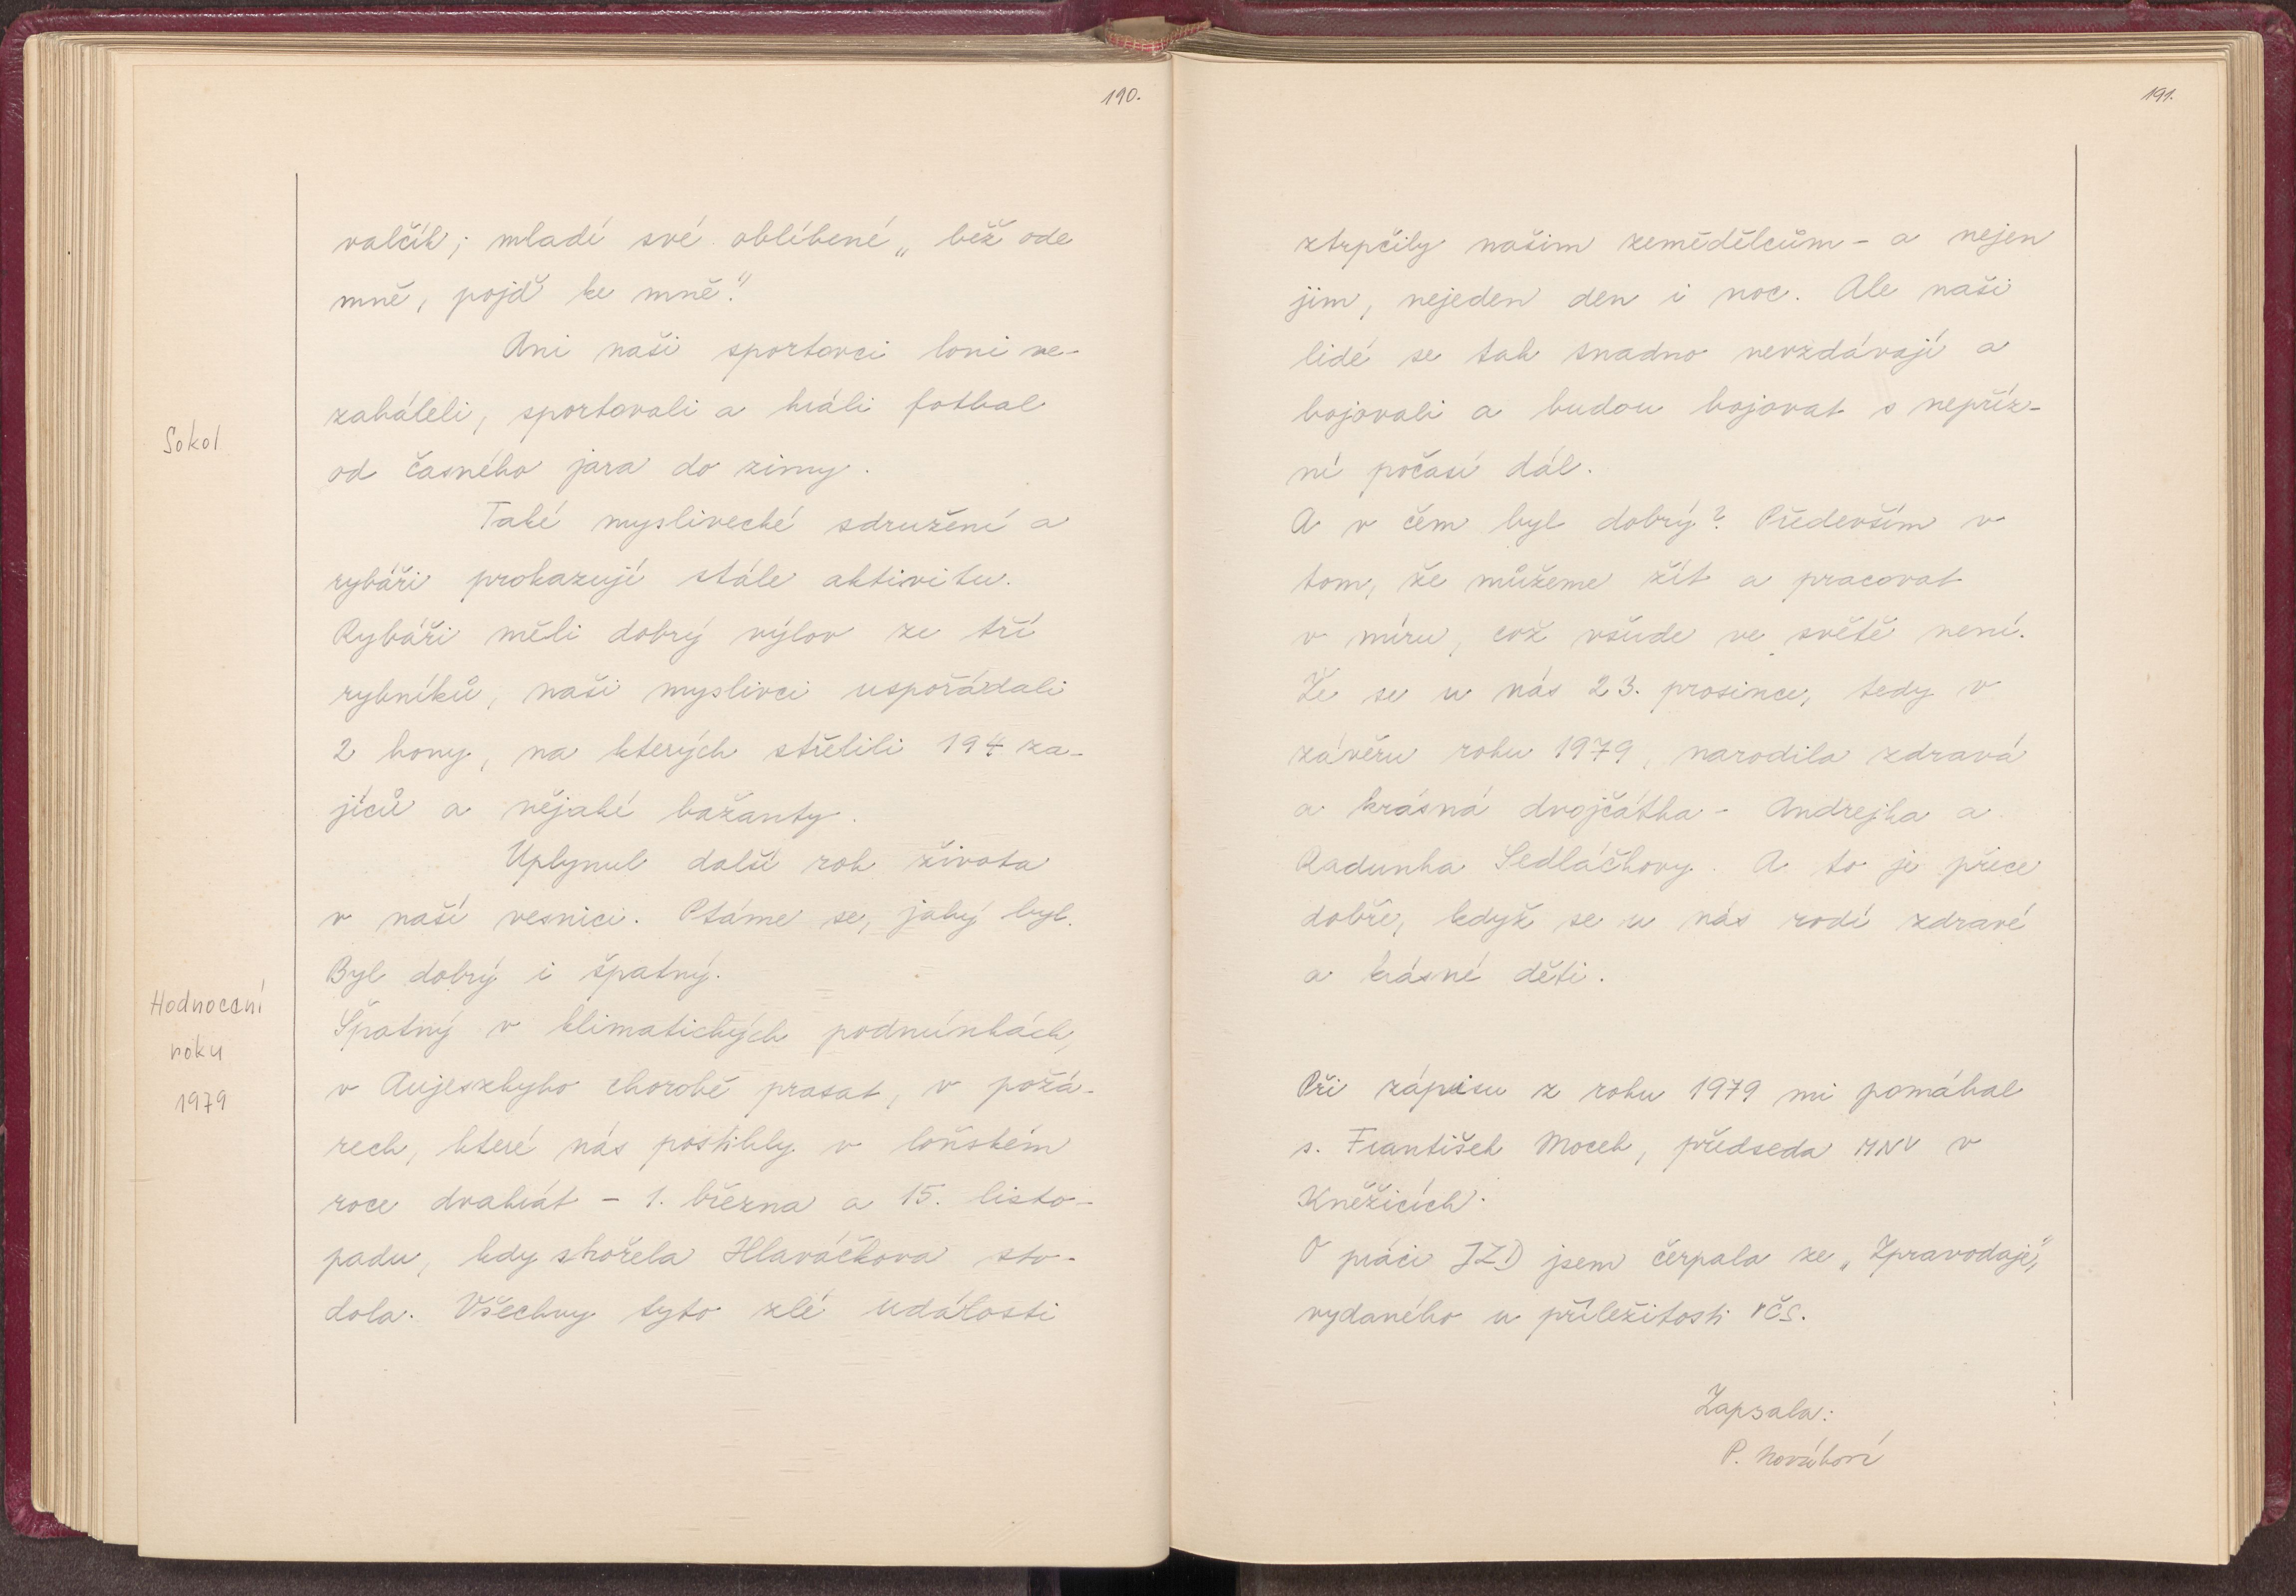 190.
valčík; mladí své oblíbené „běž ode
mně, pojď ke mně."
Ani naši sportovci loni ne-
zaháleli, sportovali a hráli fotbal
Sokol
od časného jara do zimy.
Také myslivecké sdružení a
rybáři prokazují stále aktivitu.
Rybáři měli dobrý výlov ze tří
rybníků, naši myslivci uspořádali
2 hony, na kterých střelili 194 za-
jíců a nějaké bažanty.
Uplynul další rok života
v naší vesnici. Ptáme se, jaký byl.
Byl dobrý i špatný.
Hodnocení
roku
1979
Špatný v klimatických podmínkách,
v Aujeszkyho chorobě prasat, v požá-
rech, které nás postihly v loňském
roce dvakrát - 1. března a 15. listo-
padu, kdy shořela Hlaváčkova sto-
dola. Všechny tyto zlé události
191.
ztrpčily našim zemědělcům - a nejen
jim, nejeden den i noc. Ale naši
lidé se tak snadno nevzdávají a
bojovali a budou bojovat s nepříz-
ní počasí dál.
A v čem byl dobrý? Především v
tom, že můžeme žít a pracovat
v míru, což všude ve světě není.
Že se u nás 23. prosince, tedy v
závěru roku 1979, narodila zdravá
a krásná dvojčátka - Andrejka a
Radunka Sedláčkovy. A to je přece
dobře, když se u nás rodí zdravé
a krásné děti.
Při zápisu z roku 1979 mi pomáhal
s. František Mocek, předseda MNV v
Kněžicích.
O práci JZD jsem čerpala ze „Zpravodaje",
vydaného u příležitosti VČS.
Zapsala:
P. Nováková